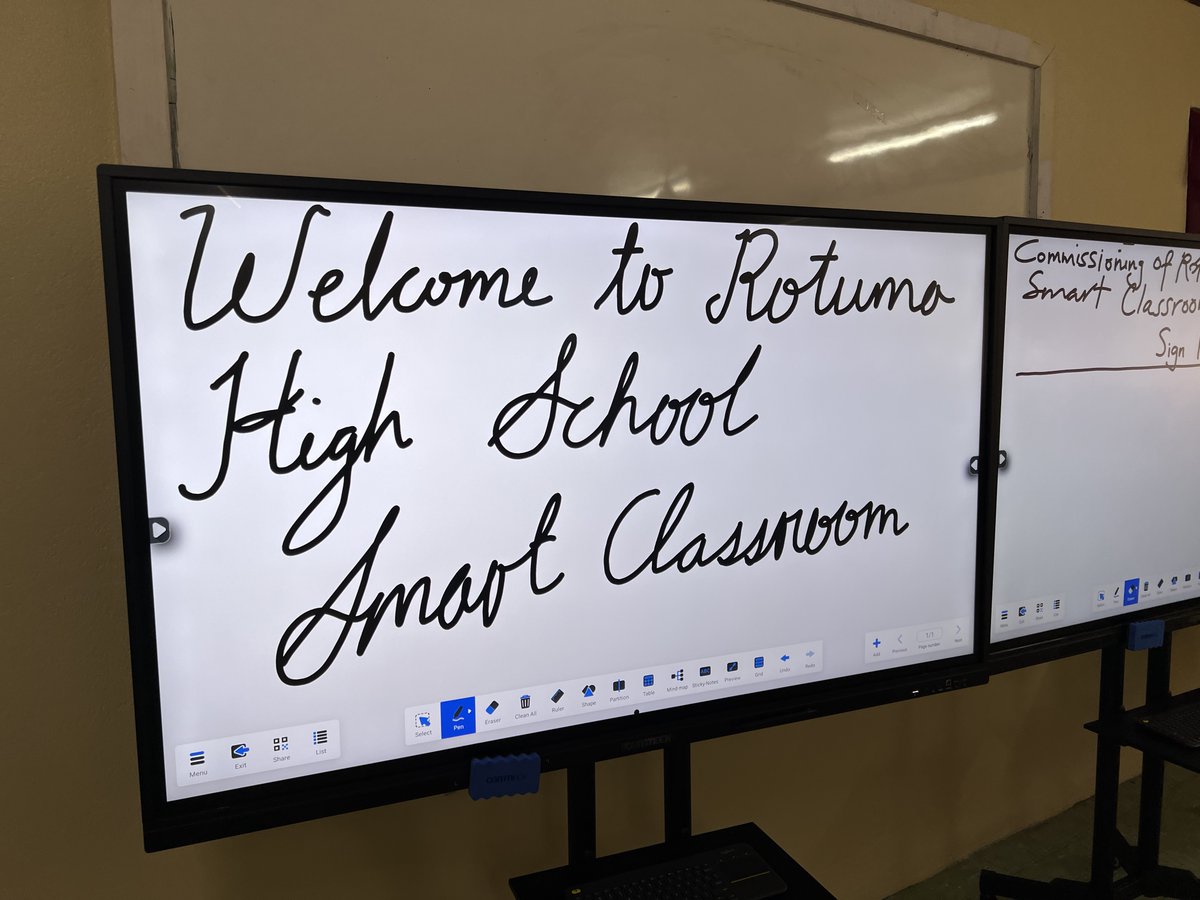 Welcome to Rotuma
High School
Smart Classroom
Menu
Exit
Share
List
Select
Pen
Eraser
Clean All
Ruler
Shape
Partition
Table
Mind map
Sticky Notes
Preview
Grid
Undo
Redo
Add
Previous
1/1
Page number
Next
Commissioning of
Smart
Sign